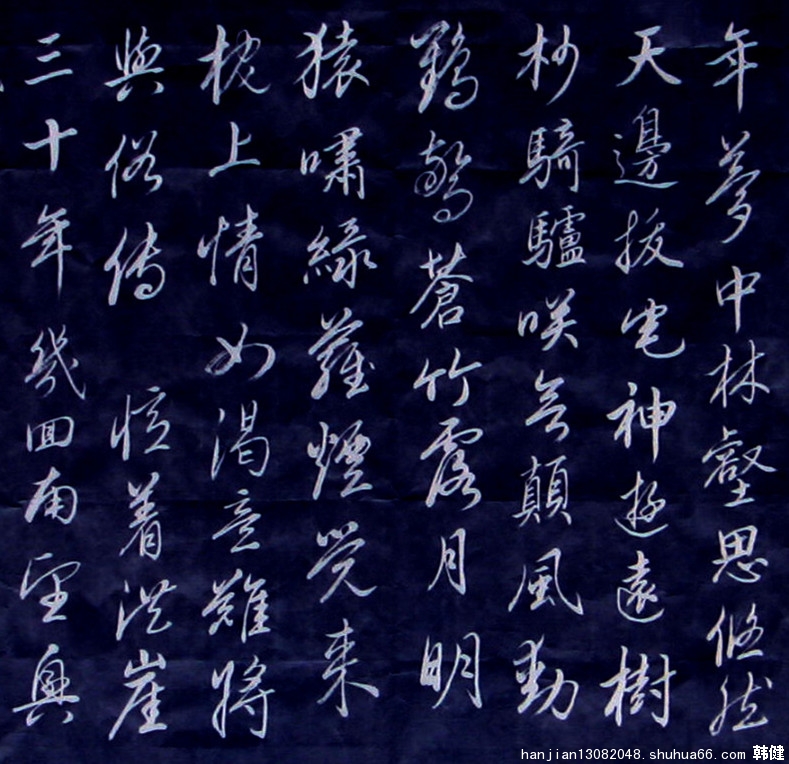 年夢中林壑思悠然
天邊拔宅神遊遠樹
杪騎驢咲無顛風動
鶴驚蒼竹露月明
猿嘯綠蘿煙覺来
枕上情如渴意難將
與俗傳 憶着洪崖
三十年幾囬南望興
hanjian13082048.shuhua66.com 韩健